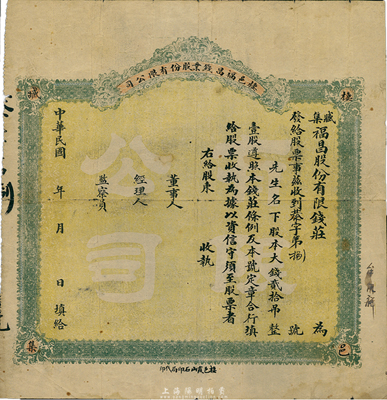 棲邑福昌錢業股份有限公司
棲
臧
邑
集
臧集福昌股份有限錢莊 為
發給股票事茲收到泰字第捌 號
先生名下股本大錢貳拾吊整
壹股遵照本錢莊條例及本號定章合行填
給股票收執為據以資信守須至股票者
右給股東 收執
董事人
經理人
監察員
中華民國 年 月 日 填給
公司
棲邑霞山石印局代印
上海陽明拍賣